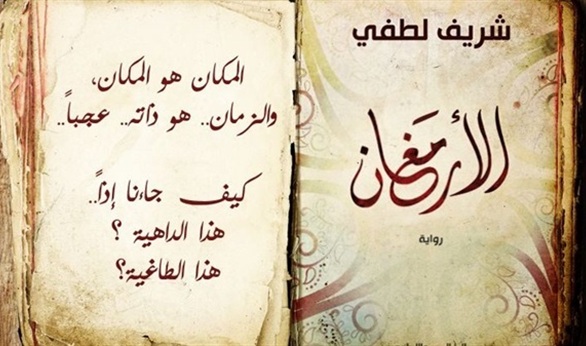 شريف لطفي
الأرمغان
رواية
المكان هو المكان،
والزمان.. هو ذاته.. عجباً..
كيف جاءنا إذاً..
هذا الداهية ؟
هذا الطاغية؟